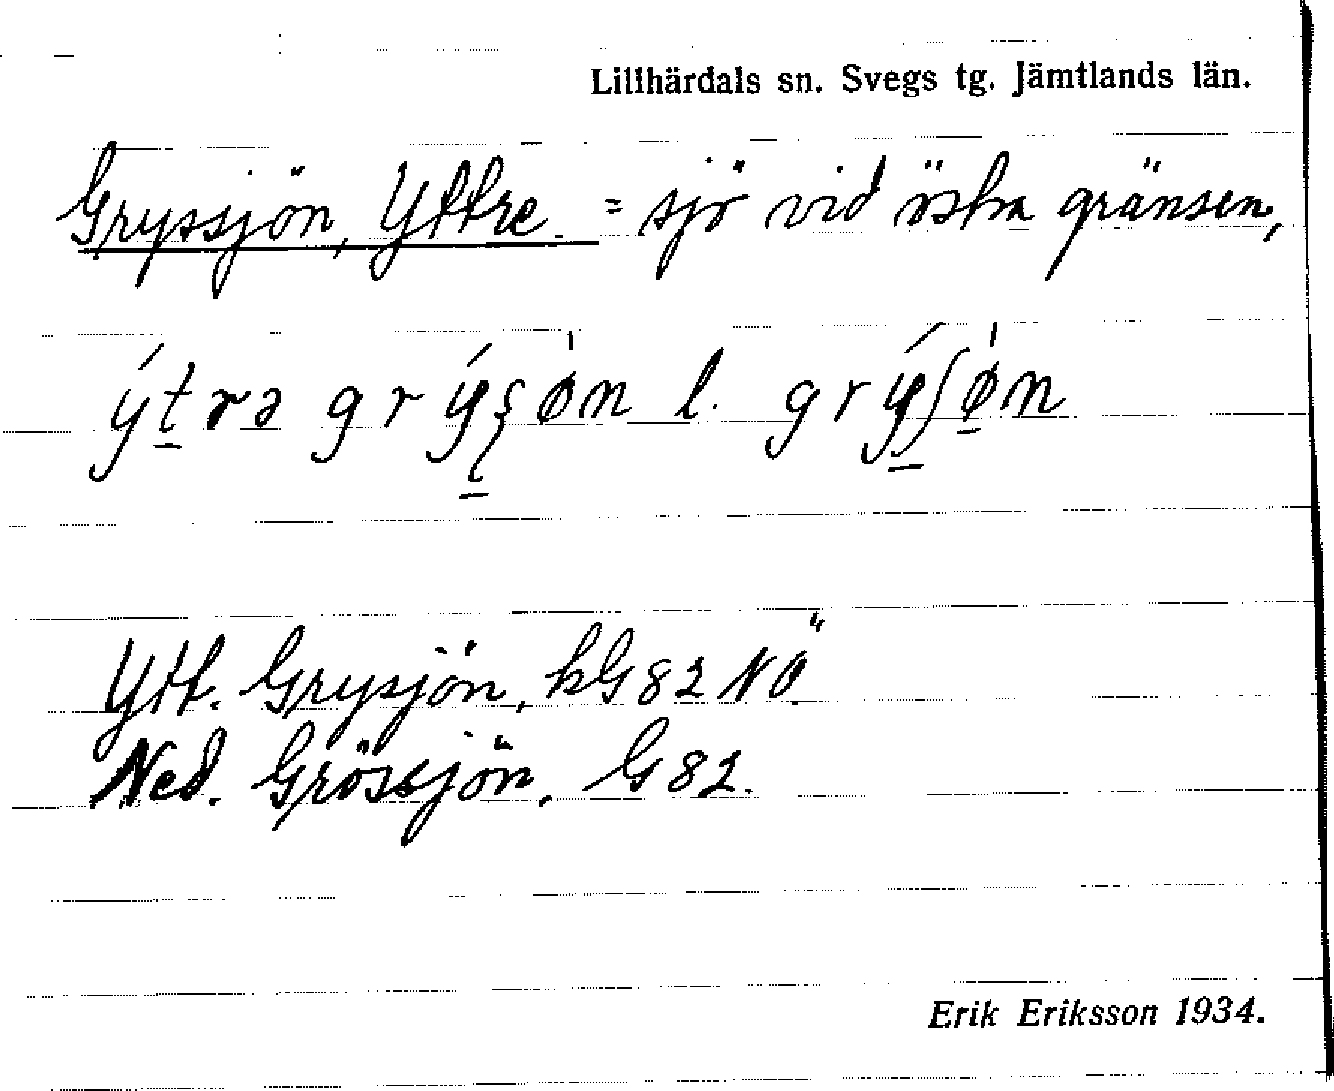 Lillhärdals sn. Svegs tg. Jämtlands län.
Gryssjön, Yttre = sjö vid östra gränsen,
ýt̠rə grýʂ̠ø̍n l. grý̠ʃø̠̍n
Ytt. Grysjön, kG82NÖ
Ned. Grössjön, G82.
Erik Eriksson 1934.